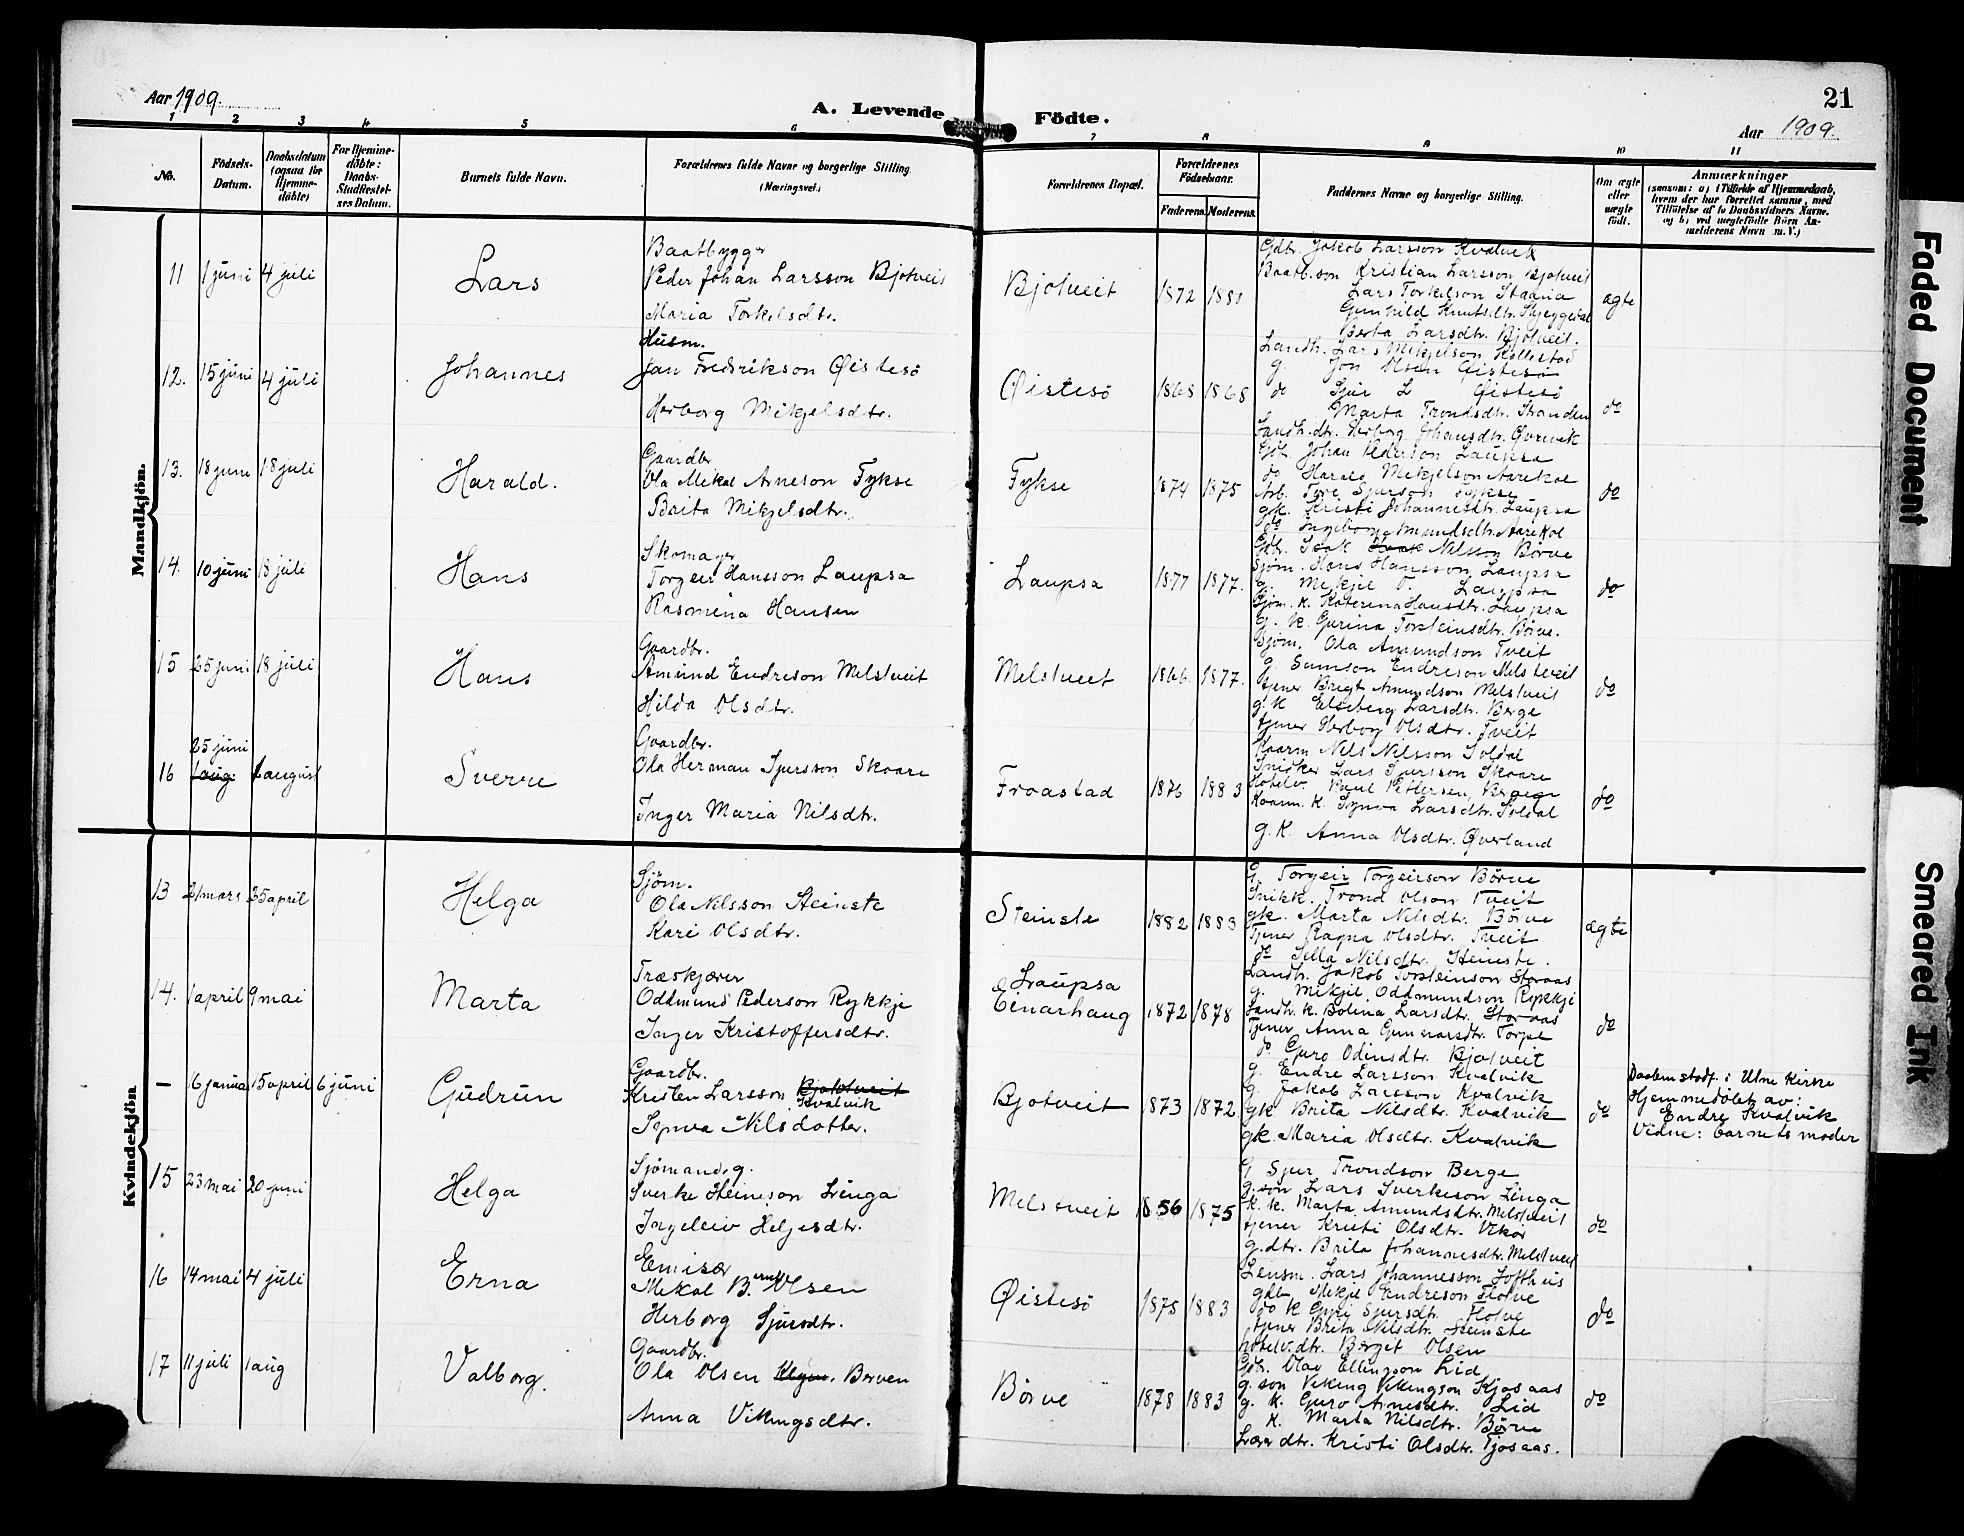 Aar 1909.
A. Levende Födte.
21
Aar 1909.
1 2 3 4 5 6 7 8 9 10 11
No.
Födsels-Datum.
Daabsdatum (ogsaa for Hjemme-döbte)
For Hjemme-döbte: Daabs-Stadfæstel-ses Datum.
Barnets fulde Navn.
Forældrenes fulde Navne og borgerlige Stilling. (Næringsvei.)
Forældrenes Bopæl.
Forældrenes Födselsaar.
Faderens. Moderens.
Faddernes Navne og borgerlige Stilling.
Om ægte eller uægte födt.
Anmærkninger
(saasom: a) i Tilfælde af Hjemmedaab, hvem der har forrettet samme, med Tilföielse af to Daabsvidners Navne, og b) ved uægtefödte Börn An-melderens Navn m. V.)
Mandkjön.
11 1 juni 4 juli Lars
Baatbygger
Peder Johan Larsson Bjotveit
Maria Torkelsdtr.
Bjotveit 1872
Gdb. Jakob Larsson Kvalvik
Baatb.son Kristian Larsson Bjotveit
Lars Torkelson
Gunhild Knutsdtr.
Berta Larsdtr. Bjotveit.
ægte
12. 15 juni 4 juli Johannes
Husm.
Jan Fredrikson Øistesö
Herborg Mikjelsdtr.
Øistesö 1868 1868
Landh. Lars Mikjelson
g. Jon Olsen Øistesö
do Sjur L Øistesö
Marta Trondsdtr. Stranden
Landh.dtr. Herborg Johansdtr.
do
13. 18 juni 18 juli Harald.
Gaardbr.
Ola Mikal Arneson Fykse
Brita Mikjelsdtr.
Fykse 1874 1875
Gdb. Johan Pederson Laupsa
do Harald Mikjelson Aarekol
Arb. Tore Sjurson Fykse
gk. Kristi Johannesdtr. Laupsa
do Ingeborg Amundsdtr. Aarekol
do
14. 10 juni 18 juli Hans
Skomager
Torgeir Hansson Laupsa
Rasmina Hansen
Laupsa 1877 1877.
Gdb. Isak Nilsson Börve
Sjöm. Hans Hansson Laupsa
g. Mikjel T. Laupsa
Sjöm. k. Katerina Hansdtr. Laupsa
g. k. Gurina Torsteinsdtr. Börve.
do
15 25 juni 18 juli Hans
Gaardbr.
Amund Endreson Melstveit
Hilda Olsdtr.
Melstveit 1866. 1877.
Sjöm. Ola Amundson Tveit
g. Samson Endreson Melstveit
tjener Brigt Amundson Melstveit
g.k Elseberg Larsdtr. Berge
tjener Herborg Olsdtr. Tveit
do
16 25 juni 1 aug. 1 august Sverre
Gaardbr.
Ola Herman Sjursson Skaare
Inger Maria Nilsdtr.
Froastad 1876 1883
Kaarm. Nils Nilsson Soldal
Snidker Lars Sjursson Skaare
Hotelv. Paul Pettersen, Bergen
Kaarm. k. Synva Larsdtr. Soldal
g.k. Anna Olsdtr. Øverland
do
Kvindekjön
13 21 mars 25 april Helga
Sjöm.
Ola Nilsson Steinstö
Kari Olsdtr.
Steinstö 1882 1883
G. Torgeir Torgeirson Börve
Snikk. Trond Olson Tveit
gk. Marta Nilsdtr. Börve
Tjener Ragna Olsdtr. Tveit
do Nilsdtr. Steinstö.
ægte
14. 1 april 9 mai Marta
Træskjærer
Oddmund Pederson Rykkje
Inger Kristoffersdtr.
Laupsa
Einarhaug 1872 1878
Landh. Jakob Torsteinson Storaas
g. Mikjel Oddmundson Rykkje
Landh. k. Bolina Larsdtr. Storaas
Tjener Anna Gunnarsdtr. Torpe
do Guro Odinsdtr. Bjotveit
do
— 16 januar 15 april 6 juni Gudrun
Gaardbr.
Kristen Larsson Bjotveit Kvalvik
Synva Nilsdotter.
Bjotveit 1873 1872
g. Endre Larsson Kvalvik
G. Jakob Larsson Kvalvik
gk. Brita Nilsdtr. Kvalvik
gk. Maria Olsdtr. Kvalvik
do
Daaben stadf. i Ulne Kirke
Hjemmedöbt av:
Endre Kvalvik
Vidne: barnets moder
15 23 mai 20 juni Helga
Sjömand, g.
Sverke Heineson Linga
Ingeleiv Heljesdtr.
Melstveit 1856 1875
G Sjur Trondson Berge
g.son Lars Sverkeson Linga
k.k. Marta Amundsdtr. Melstveit
tjener Kristi Olsdtr. Vikör
g.dtr. Brita Johannesdtr. Melstveit
do
16 14 mai 4 juli Erna
Emisær
Mikal Bernt Olsen
Herborg Sjursdtr.
Øistesö 1875 1883
Lensm. Lars Johannesson Lofthus
gdb. Mikjel Endreson Flotve
do k. Guri Sjursdtr. Flotve
tjener Brita Nilsdtr. Steinstö
hotelv.dtr. Borgit Olsen
do
17 11 juli 1 aug Valborg.
Gaardbr.
Ola Olsen Berven
Anna Vikingsdtr.
Börve 1878 1883
Gdb. Olav Ellingson Lid
g.son Viking Vikingson Kjosaas
g. k. Guro Arnesdtr. Lid
k. Marta Nilsdtr. Börve
Lærer dtr. Kristi Olsdtr. Tjosaas.
do
Faded Document
Smeared Ink